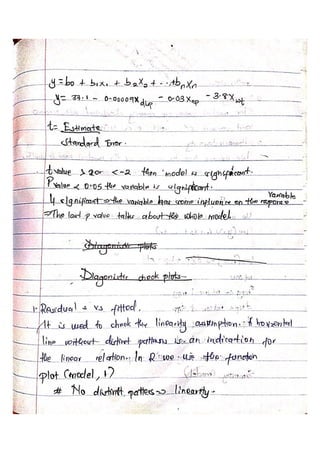 y = b0 + b1x1 + b2x2 + ... + bnxn
y = 37.1 - 0.00009X disp - 0.03X hp - 3.8X wt
t = Estimate
Standard Error.
t value > 2 or < -2 then model is significant.
P value < 0.05 the variable is significant.
If significant => the variable has some influence on the response variable
=> The last p value talks about the whole model.
Diagonistic plots
Diagonistic check plots
1. Residual s vs fitted.
It is used to check the linearity assumption. A horizontal
line without distinct patterns is an indication for
the linear relation. In R we use the function
plot (model, 1)
# No distinct patters => linearity.